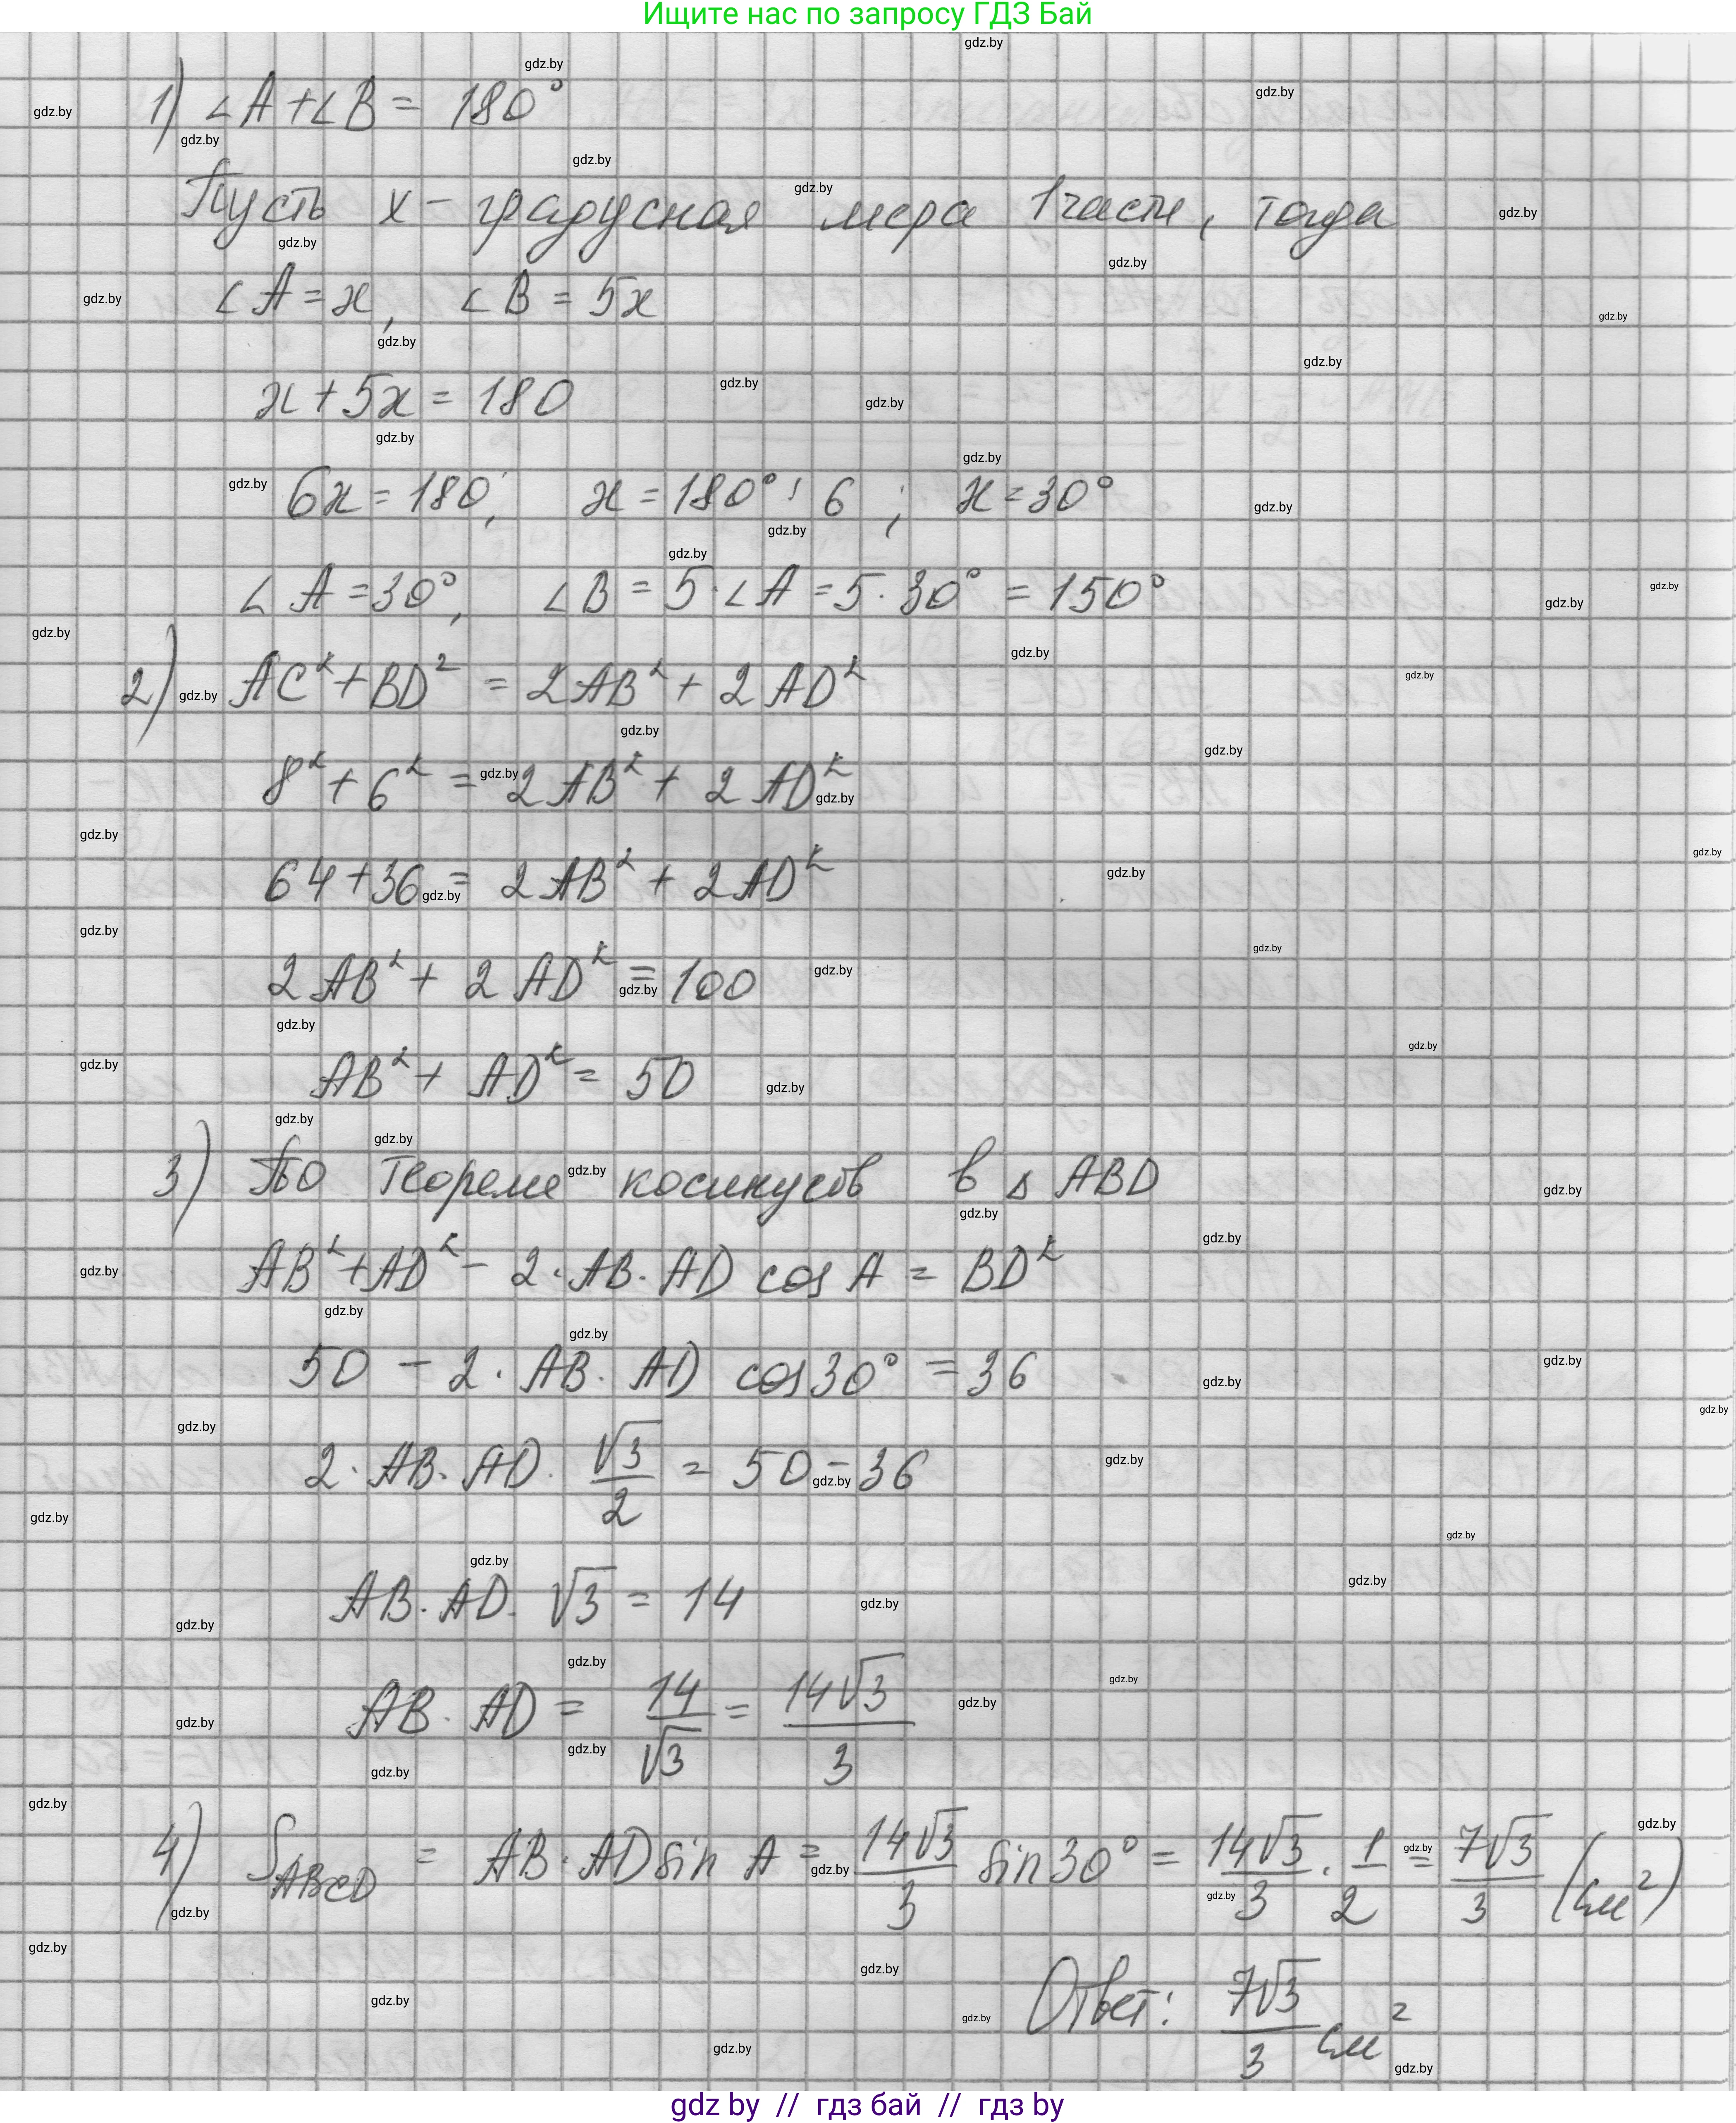 Ищите нас по запросу ГДЗ Бай
1) ∠A+∠B= 180°
Пусть x - градусная мера 1 части, тогда
∠A=x, ∠B = 5x
x+5x = 180
6x=180; x=180° : 6 ; x=30°
∠A=30°, ∠B = 5·∠A=5·30° = 150°
2) AC²+BD² = 2AB²+ 2AD²
8²+6² = 2AB²+ 2AD²
64+36 = 2AB²+ 2AD²
2AB²+ 2AD² = 100
AB²+ AD² = 50
3) По теореме косинусов в ΔABD
AB²+AD² - 2·AB·AD cos A = BD²
50 - 2·AB·AD cos 30° = 36
2·AB·AD· √3/2 = 50-36
AB·AD·√3 = 14
AB·AD = 14/√3 = 14√3/3
4) S_ABCD = AB·AD sin A = 14√3/3 sin 30° = 14√3/3 · 1/2 = 7√3/3 (см²)
Ответ: 7√3/3 см²
gdz by // гдз бай // гдз by